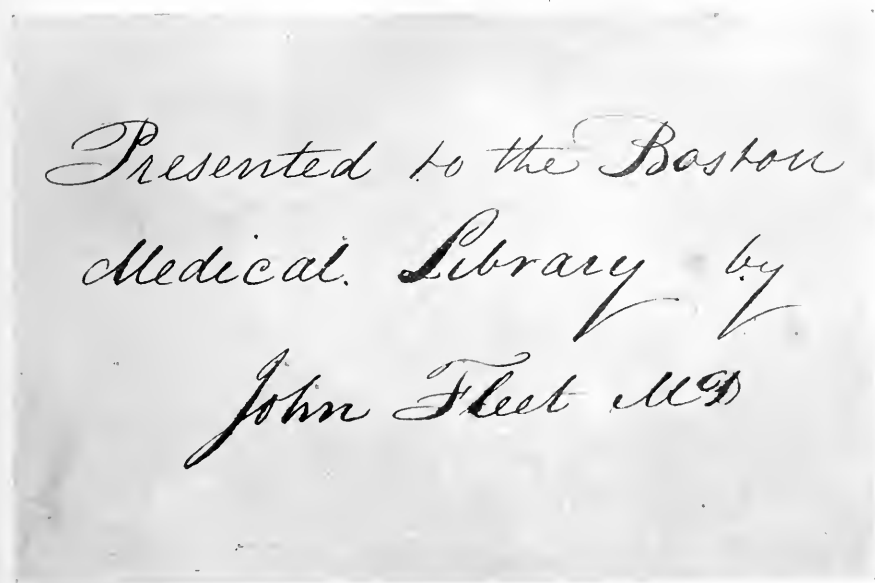 Presented to the Boston
Medical Library by
John Fleet MD